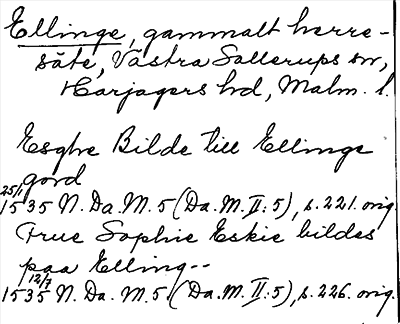 Ellinge, gammalt herre-
säte, Västra Sallerups sn,
Harjagers hd, Malm. l.
Esghe Bilde till Ellinge
gord
25/1
1535 N. Da. M. 5 (Da. M. II:5), s. 221. orig.
Frue Sophie Eskie bildes
paa Elling--
12/7
1535 N. Da. M. 5. (Da. M. II:5), s. 226. orig.